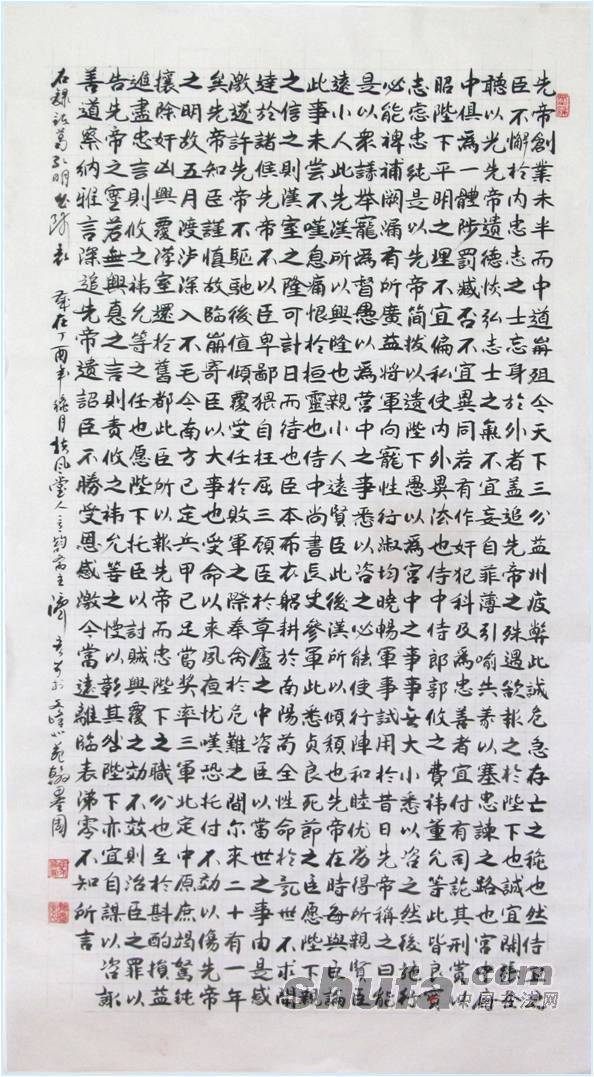 先帝創業未半而中道崩殂今天下三分益州疲弊此誠危急存亡之秋也然侍衛之
臣不懈於内忠志之士忘身於外者盖追先帝之殊遇欲報之於陛下也誠宜開張聖
聴以光先帝遗德恢弘志士之氣不宜妄自菲薄引喻失義以塞忠諫之路也宫中府
中俱為一體陟罰臧否不宜異同若有作奸犯科及為忠善者宜付有司論其刑赏以
昭陛下平明之理不宜偏私使内外異法也侍中侍郎郭攸之費禕董允等此皆良實
志慮忠純是以先帝简拔以遗陛下愚以為宫中之事事無大小悉以咨之然後施行
必能裨補阙漏有所廣益將軍向寵性行淑均曉暢軍事試用於昔日先帝稱之曰能
是以衆議舉寵為督愚以為營中之事悉以咨之必能使行陣和睦优劣得所親賢臣
遠小人此先漢所以興隆也親小人遠賢臣此後漢所以傾頹也先帝在時每與臣論
此事未尝不嘆息痛恨於桓靈也侍中尚書長史參軍此悉贞良死節之臣愿陛下親
之信之則漢室之隆可計日而待也臣本布衣躬耕於南陽苟全性命於亂世不求聞
達於諸侯先帝不以臣卑鄙猥自枉屈三顧臣於草廬之中咨臣以當世之事由是感
激遂許先帝以驅馳後值傾覆受任於敗軍之際奉命於危難之間尔来二十有一年
矣先帝知臣謹慎故臨崩寄臣以大事也受命以来夙夜忧嘆恐托付不効以傷先帝
之明故五月渡泸深入不毛今南方已定兵甲已足當奖率三軍北定中原庶竭駑钝
攘除奸凶興覆漢室還於舊都此臣所以報先帝而忠陛下之職分也至於斟酌損益
進盡忠言則攸之禕允等之任也愿陛下托臣以討賊興覆之効不效則治臣之罪以
告先帝之靈若無興息之言則責攸之禕允等之慢以彰其咎陛下亦宜自謀以咨諏
善道察納雅言深追先帝遺詔臣不勝受恩感激今當遠離臨表涕零不知所言
右録諸葛孔明出師表 歲在丁酉年秋月扶風堂人韵斋主翰墨園
shufa.com
中国书法网